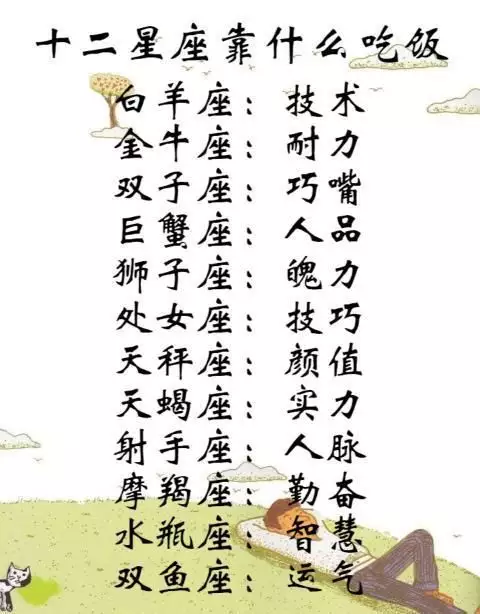 十二星座靠什么吃饭
白羊座：技术
金牛座：耐力
双子座：巧嘴
巨蟹座：人品
狮子座：魄力
处女座：技巧
天秤座：颜值
天蝎座：实力
射手座：人脉
摩羯座：勤奋
水瓶座：智慧
双鱼座：运气